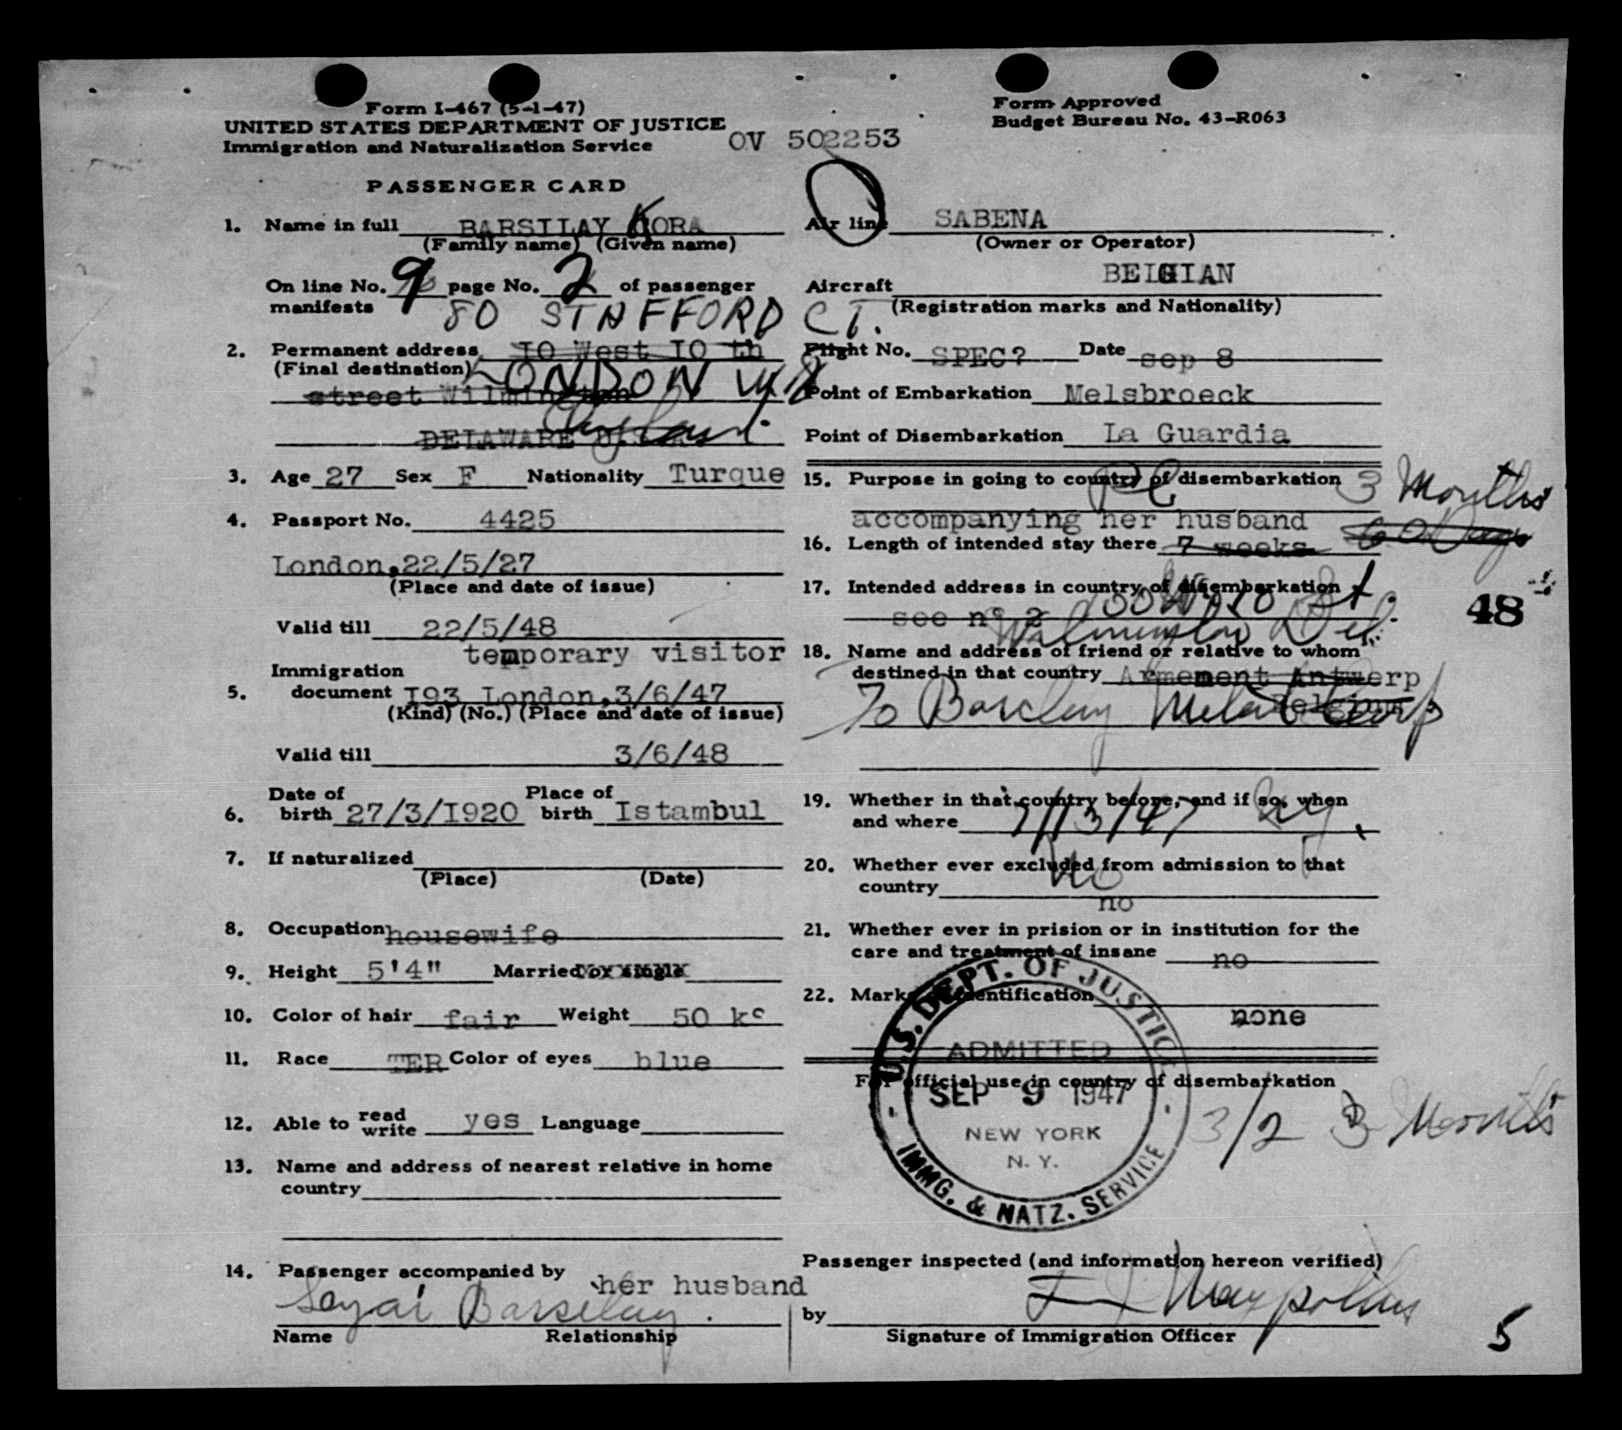 Form I-467 (5-1-47)
UNITED STATES DEPARTMENT OF JUSTICE
Immigration and Naturalization Service
OV 502253
Form Approved
Budget Bureau No. 43-R063
PASSENGER CARD
1. Name in full BARSILAY KORA
(Family name) (Given name)
On line No. 9 page No. 2 of passenger
manifests
80 STAFFORD CT.
2. Permanent address IO West IO th
(Final destination) LONDON W8
street Wilmington
DELAWARE England.
3. Age 27 Sex F Nationality Turque
4. Passport No. 4425
London,22/5/27
(Place and date of issue)
Valid till 22/5/48
temporary visitor
Immigration
5. document I93 London,3/6/47
(Kind) (No.) (Place and date of issue)
Valid till 3/6/48
6. Date of birth 27/3/I920 Place of birth Istambul
7. If naturalized
(Place) (Date)
8. Occupation housewife
9. Height 5'4" Married or single
10. Color of hair fair Weight 50 kg
11. Race TER Color of eyes blue
12. Able to read write yes Language
13. Name and address of nearest relative in home
country
14. Passenger accompanied by her husband
Barsilay
Name Relationship
Air line SABENA
(Owner or Operator)
Aircraft BELGIAN
(Registration marks and Nationality)
Flight No. SPEC? Date sep 8
Point of Embarkation Melsbroeck
Point of Disembarkation La Guardia
15. Purpose in going to country of disembarkation 3 Months
accompanying her husband
16. Length of intended stay there 7 weeks 60 Days
17. Intended address in country of disembarkation
see n° 2 100 W 10 St.
Wilmington Del.
48
18. Name and address of friend or relative to whom
destined in that country Armement Antwerp
Belgium
To Barclay
19. Whether in that country before, and if so, when
and where 7/13/47 NY.
20. Whether ever excluded from admission to that
country No
no
21. Whether ever in prision or in institution for the
care and treatment of insane no
22. Marks of identification
none
For official use in country of disembarkation
U.S. DEPT. OF JUSTICE
ADMITTED
SEP 9 1947
NEW YORK
N. Y.
IMMG. & NATZ. SERVICE
3/2 3 Months
Passenger inspected (and information hereon verified)
by
Signature of Immigration Officer
5